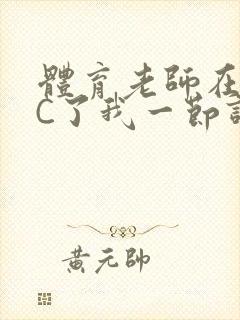 體育老師在
C了我一節
黃元帥